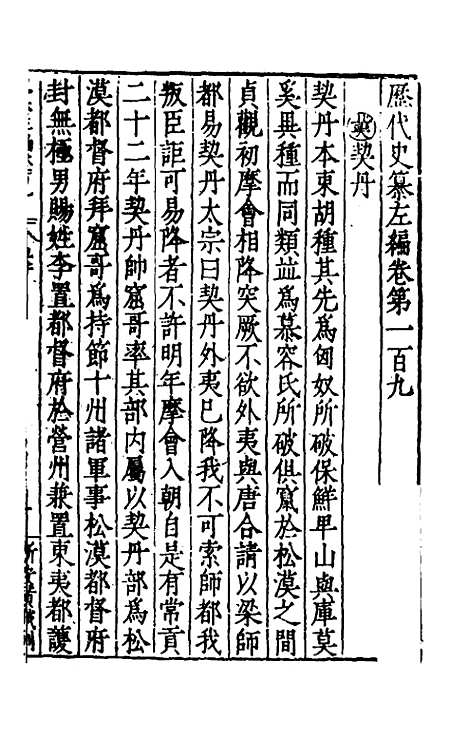 歷代史纂左編卷第一百九
夷 契丹
契丹本東胡種其先為匈奴所破保鮮卑山與庫莫
奚異種而同類並為慕容氏所破俱竄於松漠之間
貞觀初摩會相降突厥不欲外夷與唐合請以梁師
都易契丹太宗曰契丹外夷已降我不可索師都我
叛臣詎可易降者不許明年摩會入朝自是有常貢
二十二年契丹帥窟哥率其部內屬以契丹部為松
漠都督府拜窟哥為持節十州諸軍事松漠都督府
封無極男賜姓李置都督府於營州兼置東夷都護